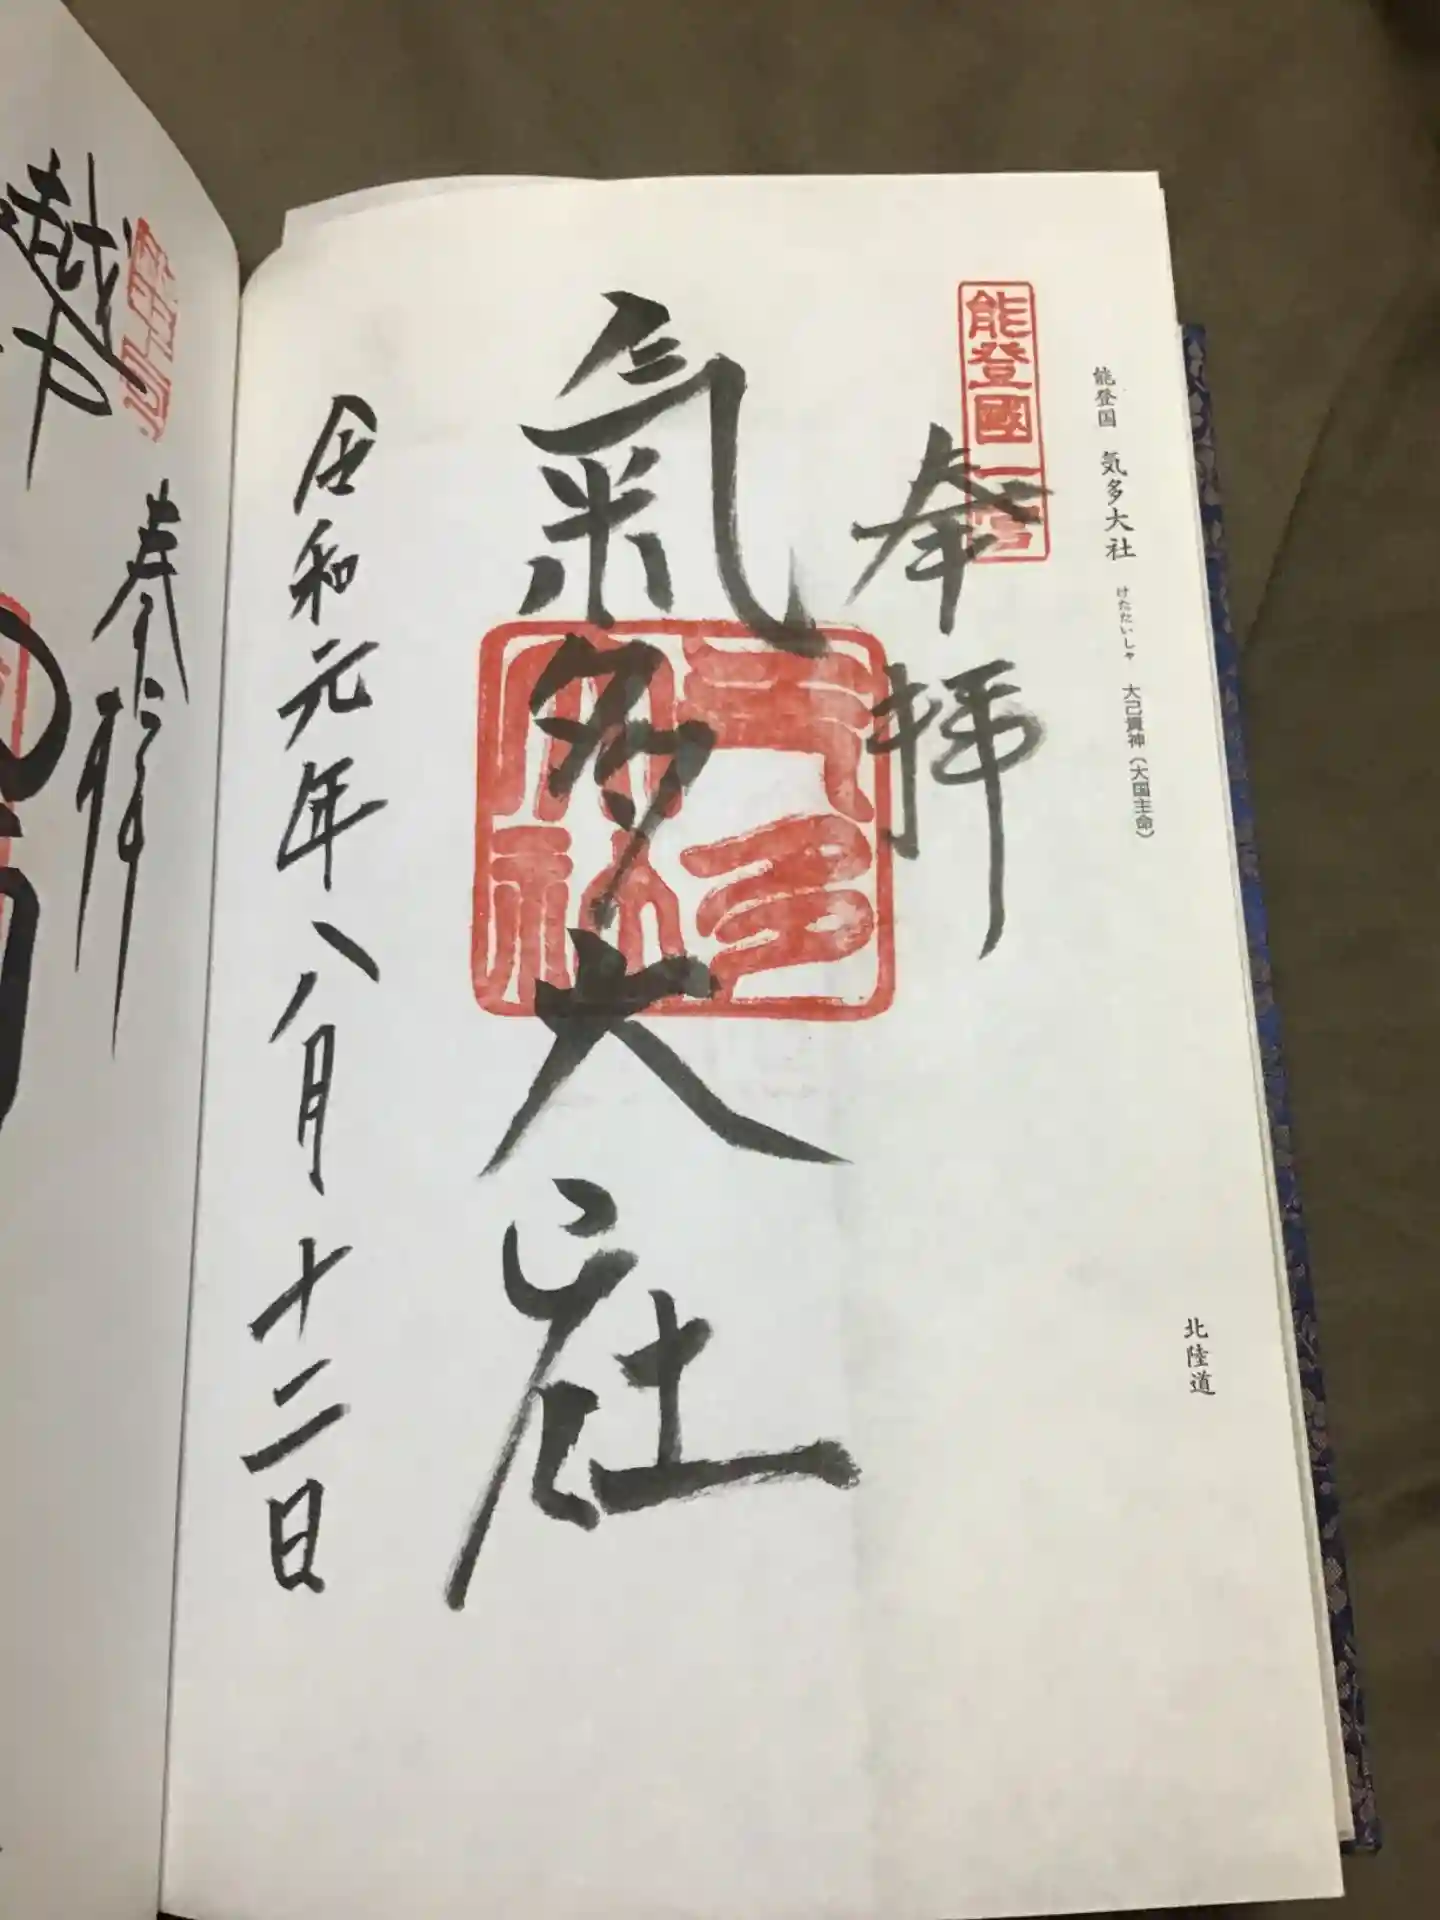 能登国 気多大社 けたたいしゃ 大己貴神(大国主命)
北陸道
能登國一宮
奉拝
氣多大社
气多大社
令和元年八月十二日
奉拝